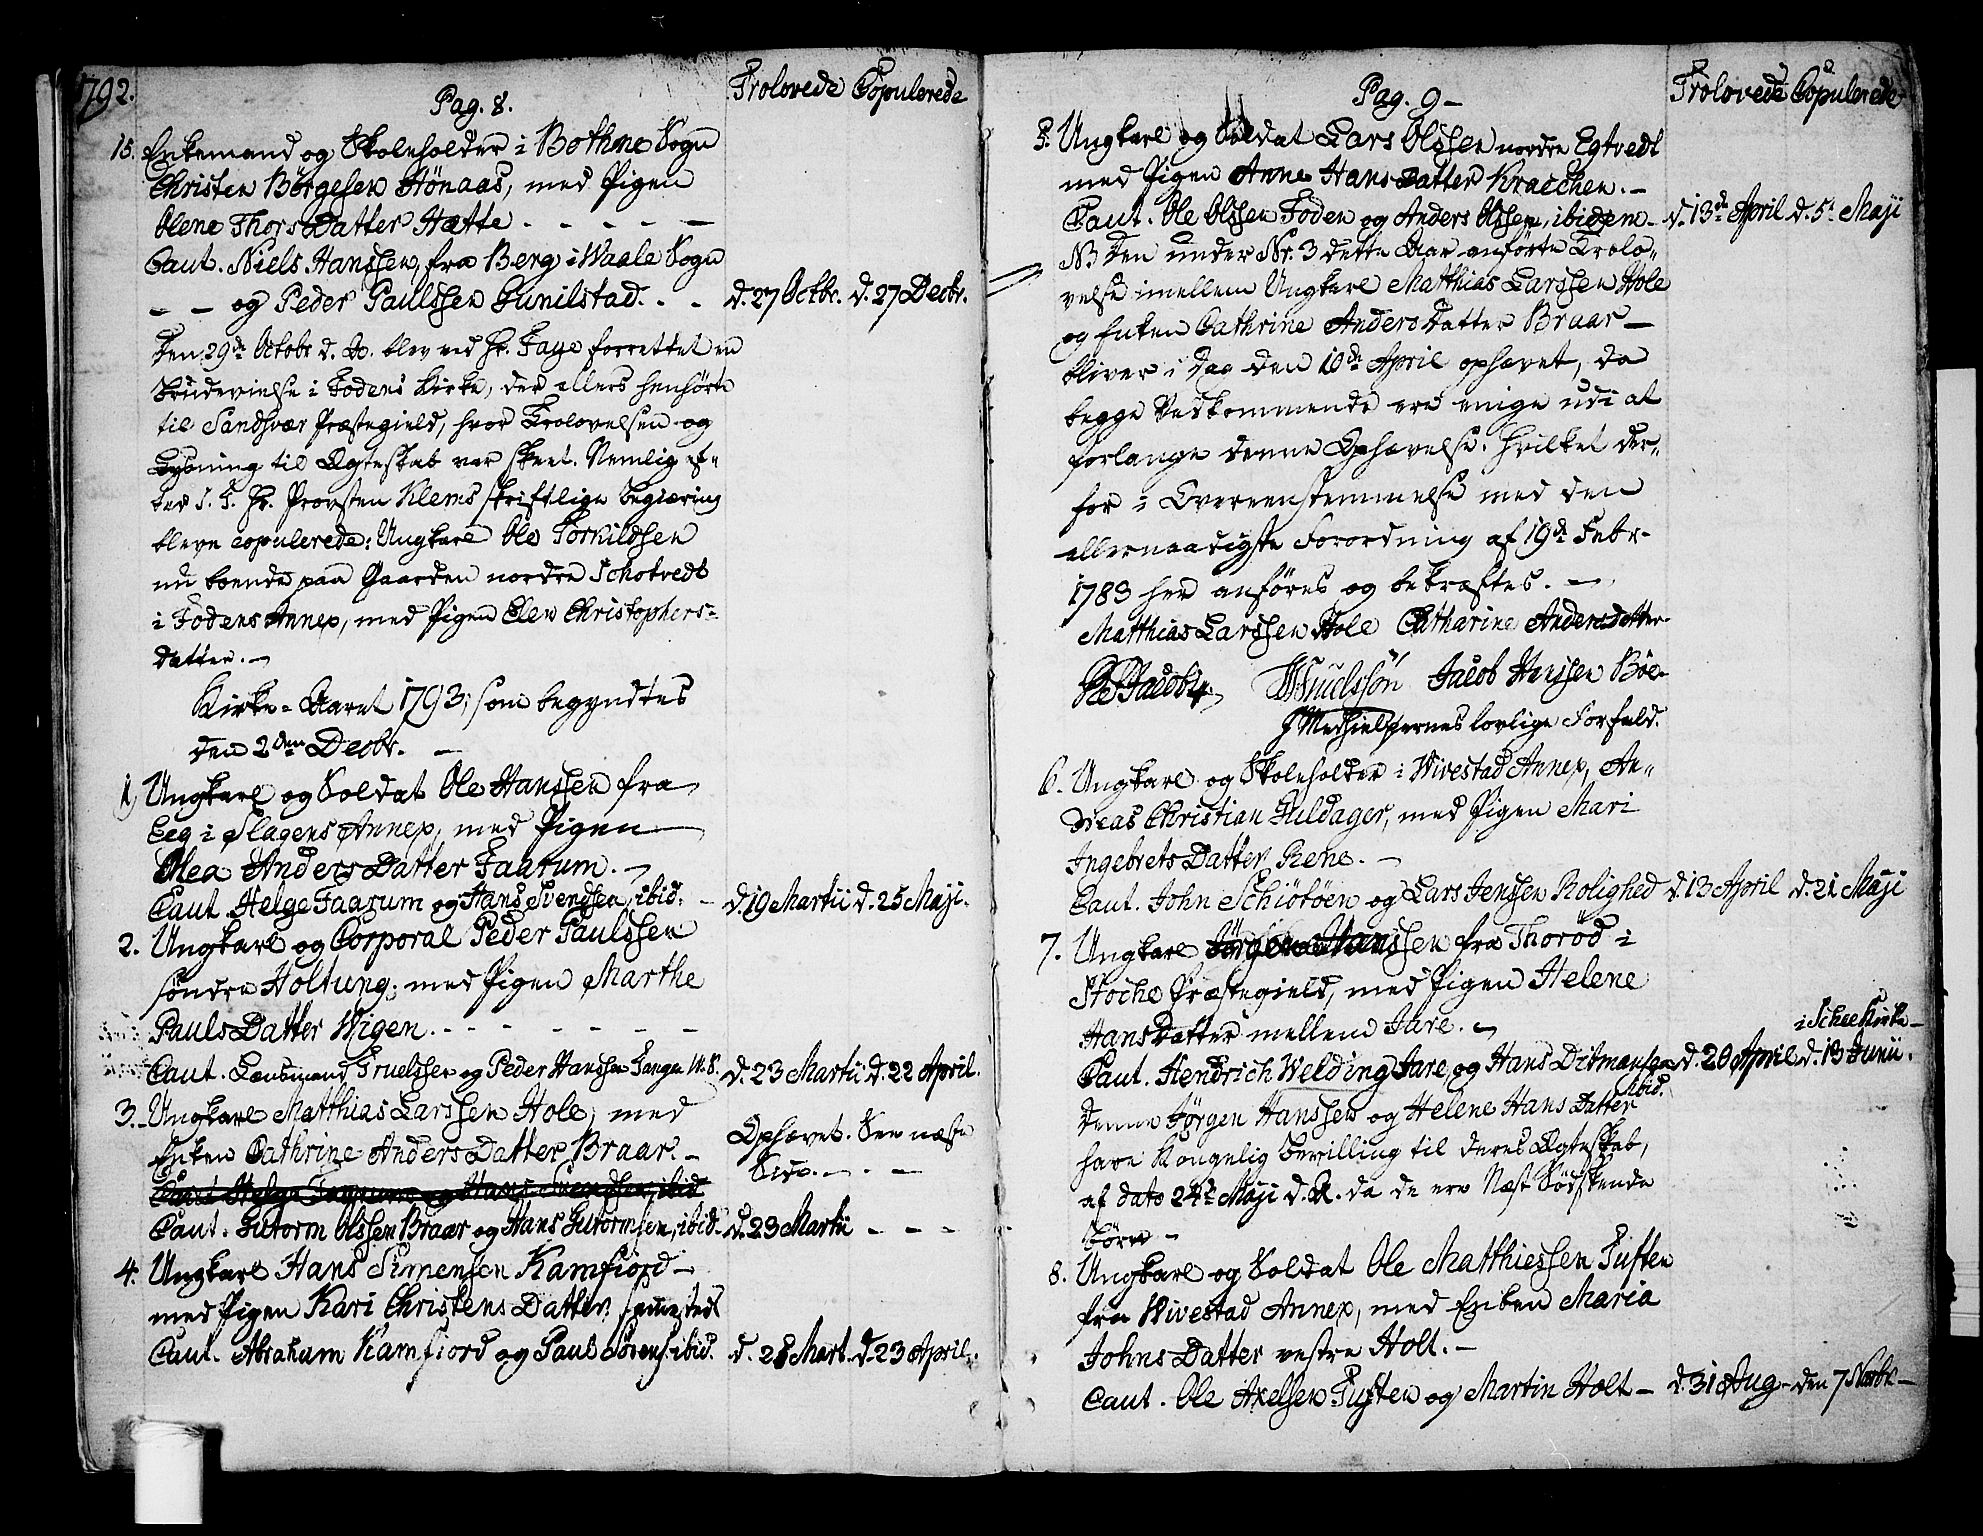 1792.
Pag. 8.
Trolovede Copulerede
15. Enkemand og Skoleholder i Bothne Sogn
Christen Börgesen Hönaas, med Pigen
Olene ThorsDatter Hætte - - - - -
Caut. Niels Hanssen, fra Berg i Waale Sogn
— — og Peder Paulssen Gunilstad. - - d. 27 Octbr. d. 27 Decbr.
Den 29de Octobr d. A. blev ved Hr. Faye forrettet en
Brudevielse i Fodens Kirke, der ellers henhörte
til Sandsvær Præstegield, hvor Trolovelsen og
Lysning til Ægteskab var skeet. Nemlig ef-
ter S. T. Hr. Provsten Klems skriftlige begiæring
bleve copulerede: Ungkarl Ole Torkildsen
nu boende paa Gaarden nordre Schotvedt
i Fodens Annex, med Pigen Elen Christophers-
datter. —
Kirke-Aaret 1793, som begyndtes
den 2den Decbr. —
1, Ungkarl og Soldat Ole Hanssen fra
Eeg i Slagens Annex, med Pigen
Olea AndersDatter Faarum. —
Caut. Helge Faarum og Hans Svendsen, ibid: - d. 19 Martii d. 25 Maji.
2. Ungkarl og Corporal Peder Paulssen
söndre Holtung, med Pigen Marthe
PaulsDatter Wigen. - - - - - - -
Caut. Lensmand Truelssen og Peder Hanssen Tange W. 8. d. 23 Martii d. 22 April.
3. Ungkarl Matthias Larssen Hole, med
Enken Cathrine AndersDatter Braar. —
Ophævet. See næste
Side. — . —
Caut. Helge Faarum og Hans Svendsen, ibid
Caut. Gutorm Olssen Braar og Hans Gutormsen, ibid. d. 23 Martii - - -
4. Ungkarl Hans Simensen Kamfiord —
med Pigen Kari ChristensDatter samesteds
Caut. Abraham Kamfiord og Paul Sörens. ibid. d. 28 Mart. d. 23 April.
Pag. 9 —
Trolovede Copulerede
5. Ungkarl og Soldat Lars Olssen nordre Egtvedt
med Pigen Anne HansDatter Kraechen. —
Caut. Ole Olssen Foden og Anders Olssen, ibidem — d. 13de April d. 5te Maji
NB Den under Nr. 3 dette Aar anförte Trolo-
velse imellem Ungkarl Matthias Larssen Hole
og Enken Cathrine AndersDatter Braar —
bliver i Dag den 10de April ophævet, da
begge Vedkommende ere enige udi at
forlange denne Ophævelse. Hvilket der-
for i Overeenstemmelse med den
allernaadigste Forordning af 19de Febr.
1783 her anföres og bekræftes. —
Matthias Larssen Hole Catharine Andersdatter
Jacob Hanssen Böe
J Medhielpernes lovlige Forfald.
6. Ungkarl og Skoleholder i Wivestad Annex, An-
dreas Christian Huldager, med Pigen Mari
IngebretsDatter Rene. —
Caut. John Schiötöen og Lars Jenssen Rolighed d. 13 April d. 21 Maji
7. Ungkarl Jörgen Hanssen fra Thoröd i
Stoche Præstegield, med Pigen Helene
HansDatter mellem Jare. —
i Schee Kirke —
Caut. Hendrich Welding Jare og Hans Ditmansen d. 20 April d. 13 Junii.
ibid.
Denne Jörgen Hanssen og Helene HansDatter
have Kongelig Bevilling til deres Ægteskab,
af dato 24de Maji d. A. da de ere Næst Södskende
börn —
8. Ungkarl og Soldat Ole Matthiessen Tuften
fra Wivestad Annex, med Enken Maria
JohnsDatter vestre Holt. —
Caut. Ole Axelsen Tuften og Martin Holt — d. 31 Aug — den 7 Novbr —